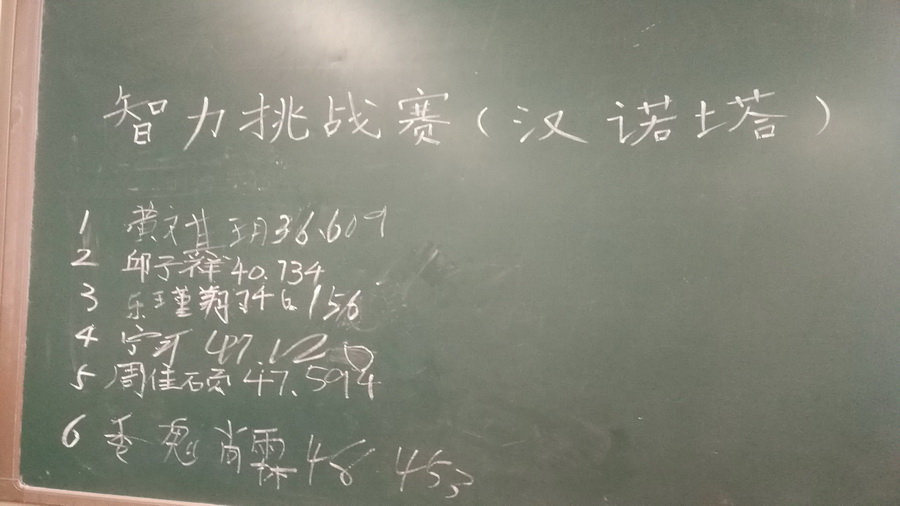 智力挑战赛（汉诺塔）
1 黄文其玥 36.609
2 邱子祥 40.734
3 乐瑾翔
4 宁 47.120
5 周佳硕 47.594
6 肖霖 48 453